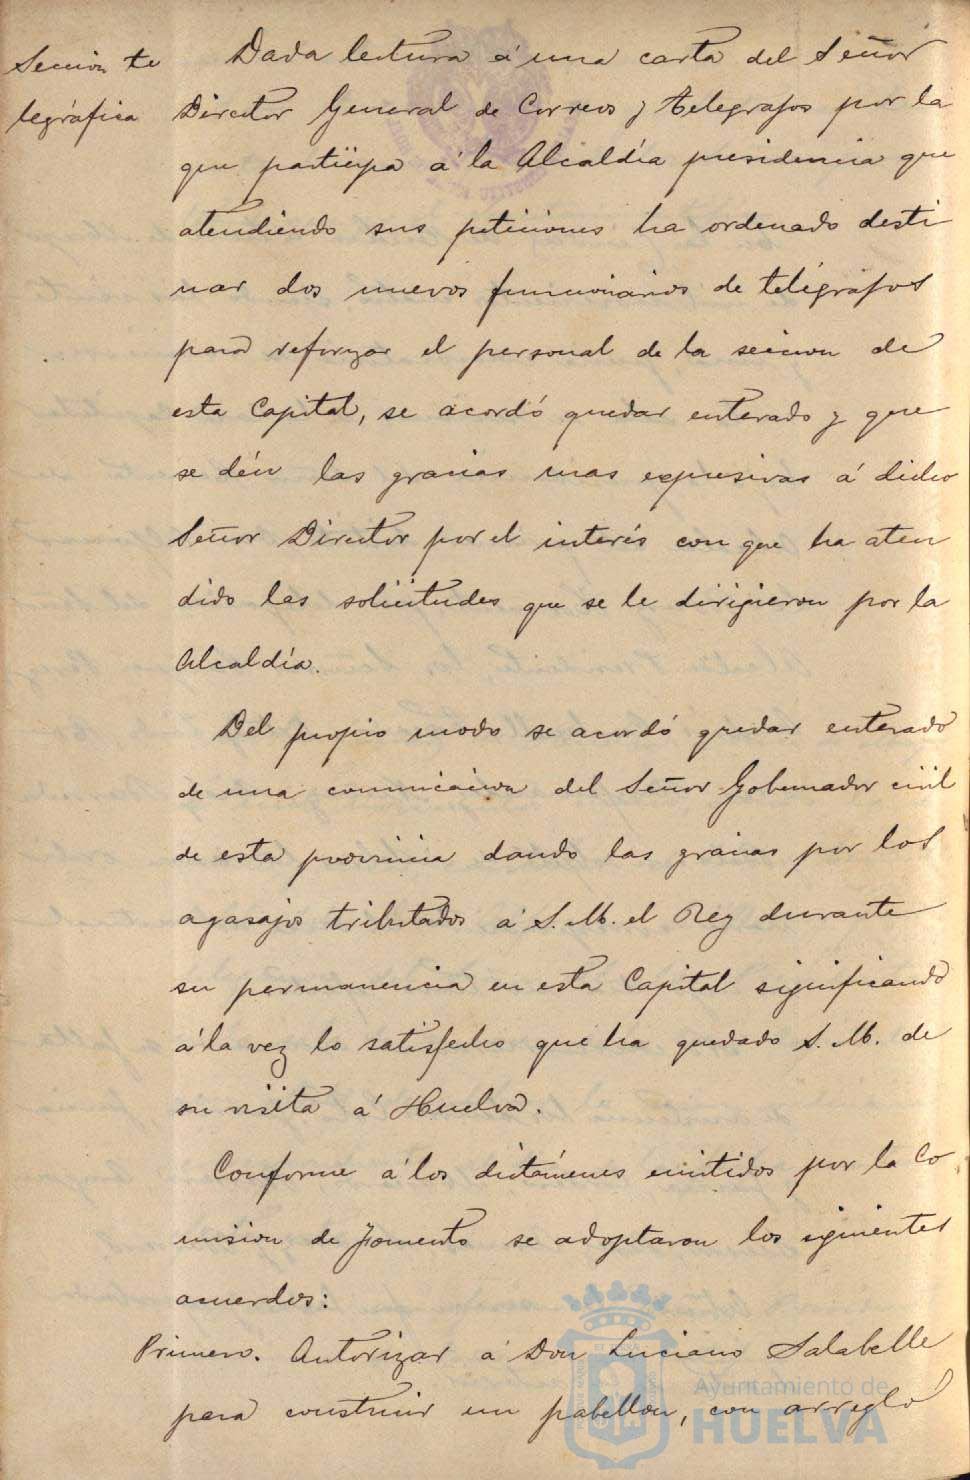 Seccion te
legráfica
Dada lectura á una carta del Señor
Director General de Correos y Telegrafos por la
que participa á la Alcaldía presidencia que
atendiendo sus peticiones ha ordenado desti
nar dos nuevos funcionarios de telégrafos
para reforzar el personal de la seccion de
esta Capital, se acordó quedar enterado y que
se dén las gracias mas expresivas á dicho
Señor Director por el interés con que ha aten
dido las solicitudes que se le dirigieron por la
Alcaldía.
Del propio modo se acordó quedar enterado
de una comunicacion del Señor Gobernador civil
de esta provincia dando las gracias por los
agasajos tributados á S. M. el Rey durante
su permanencia en esta Capital significando
á la vez lo satisfecho que ha quedado S. M. de
su visita á Huelva.
Conforme á los dictámenes emitidos por la Co
mision de Fomento se adoptaron los siguientes
acuerdos:
Primero. Autorizar á Don Luciano Salabelle
para construir un pabellon, con arreglo
Ayuntamiento de
HUELVA